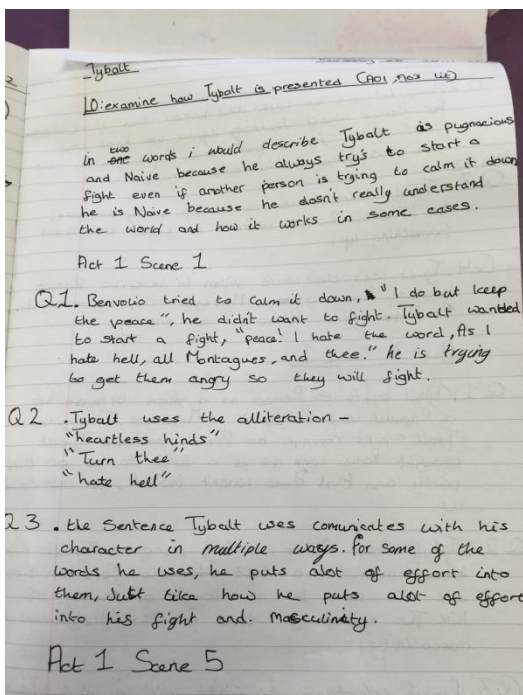 Tybalt
LO: examine how Tybalt is presented (AO1, AO2 Lit)
two
in one words i would describe Tybalt as pugnacious
and Naive because he always try's to start a
fight even if another person is trying to calm it down
he is Naive because he dosn't really understand
the world and how it works in some cases.
Act 1 Scene 1
Q1. Benvolio tried to calm it down, "I do but keep
the peace", he didn't want to fight. Tybalt wanted
to start a fight, "peace! I hate the word, As I
hate hell, all Montagues, and thee." he is trying
to get them angry so they will fight.
Q2 . Tybalt uses the alliteration -
"heartless hinds"
"Turn thee"
"hate hell"
Q3 . the Sentence Tybalt uses comunicates with his
character in multiple ways. for some of the
words he uses, he puts alot of effort into
them, Just like how he puts alot of effort
into his fight and. masculinity.
Act 1 Scene 5